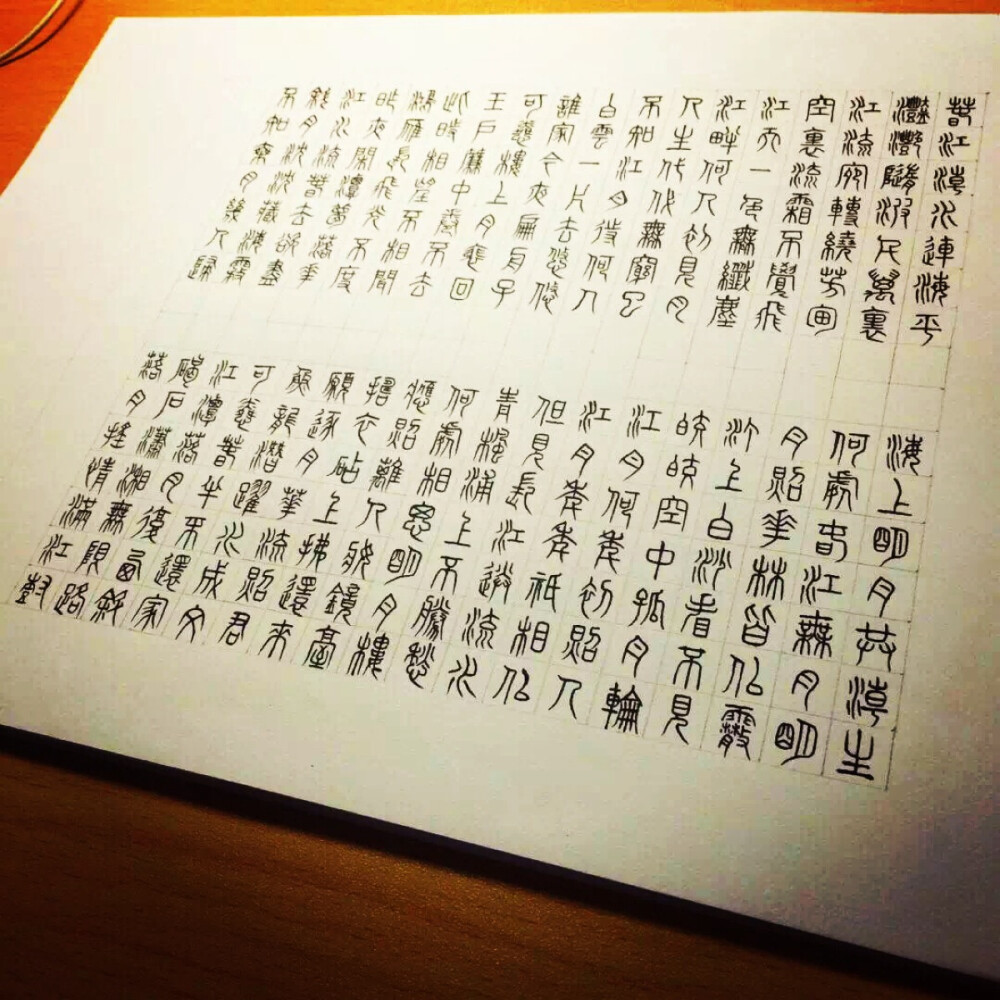 春江潮水連海平
海上明月共潮生
灩灩隨波千萬裏
何處春江無月明
江流宛轉繞芳甸
月照華林皆似霰
空裏流霜不覺飛
汀上白沙看不見
江天一色無纖塵
皎皎空中孤月輪
江畔何人初見月
江月何年初照人
人生代代無窮已
江月年年祇相似
不知江月待何人
但見長江送流水
白雲一片去悠悠
青楓浦上不勝愁
誰家今夜扁舟子
何處相思明月樓
可憐樓上月裴回
應照離人妝鏡臺
玉戶簾中卷不去
擣衣砧上拂還來
此時相望不相聞
願逐月華流照君
鴻雁長飛光不度
魚龍潛躍水成文
昨夜閑潭夢落華
可憐春半不還家
江水流春去欲盡
江潭落月復西斜
斜月沈沈藏海霧
碣石瀟湘無限路
不知乘月幾人歸
落月搖情滿江樹